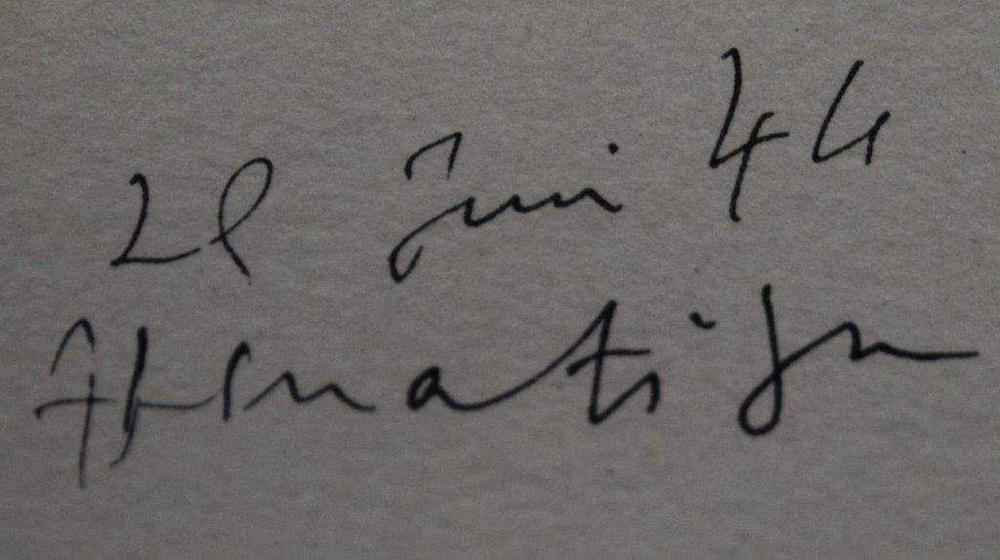 28 juin 44
HMatisse